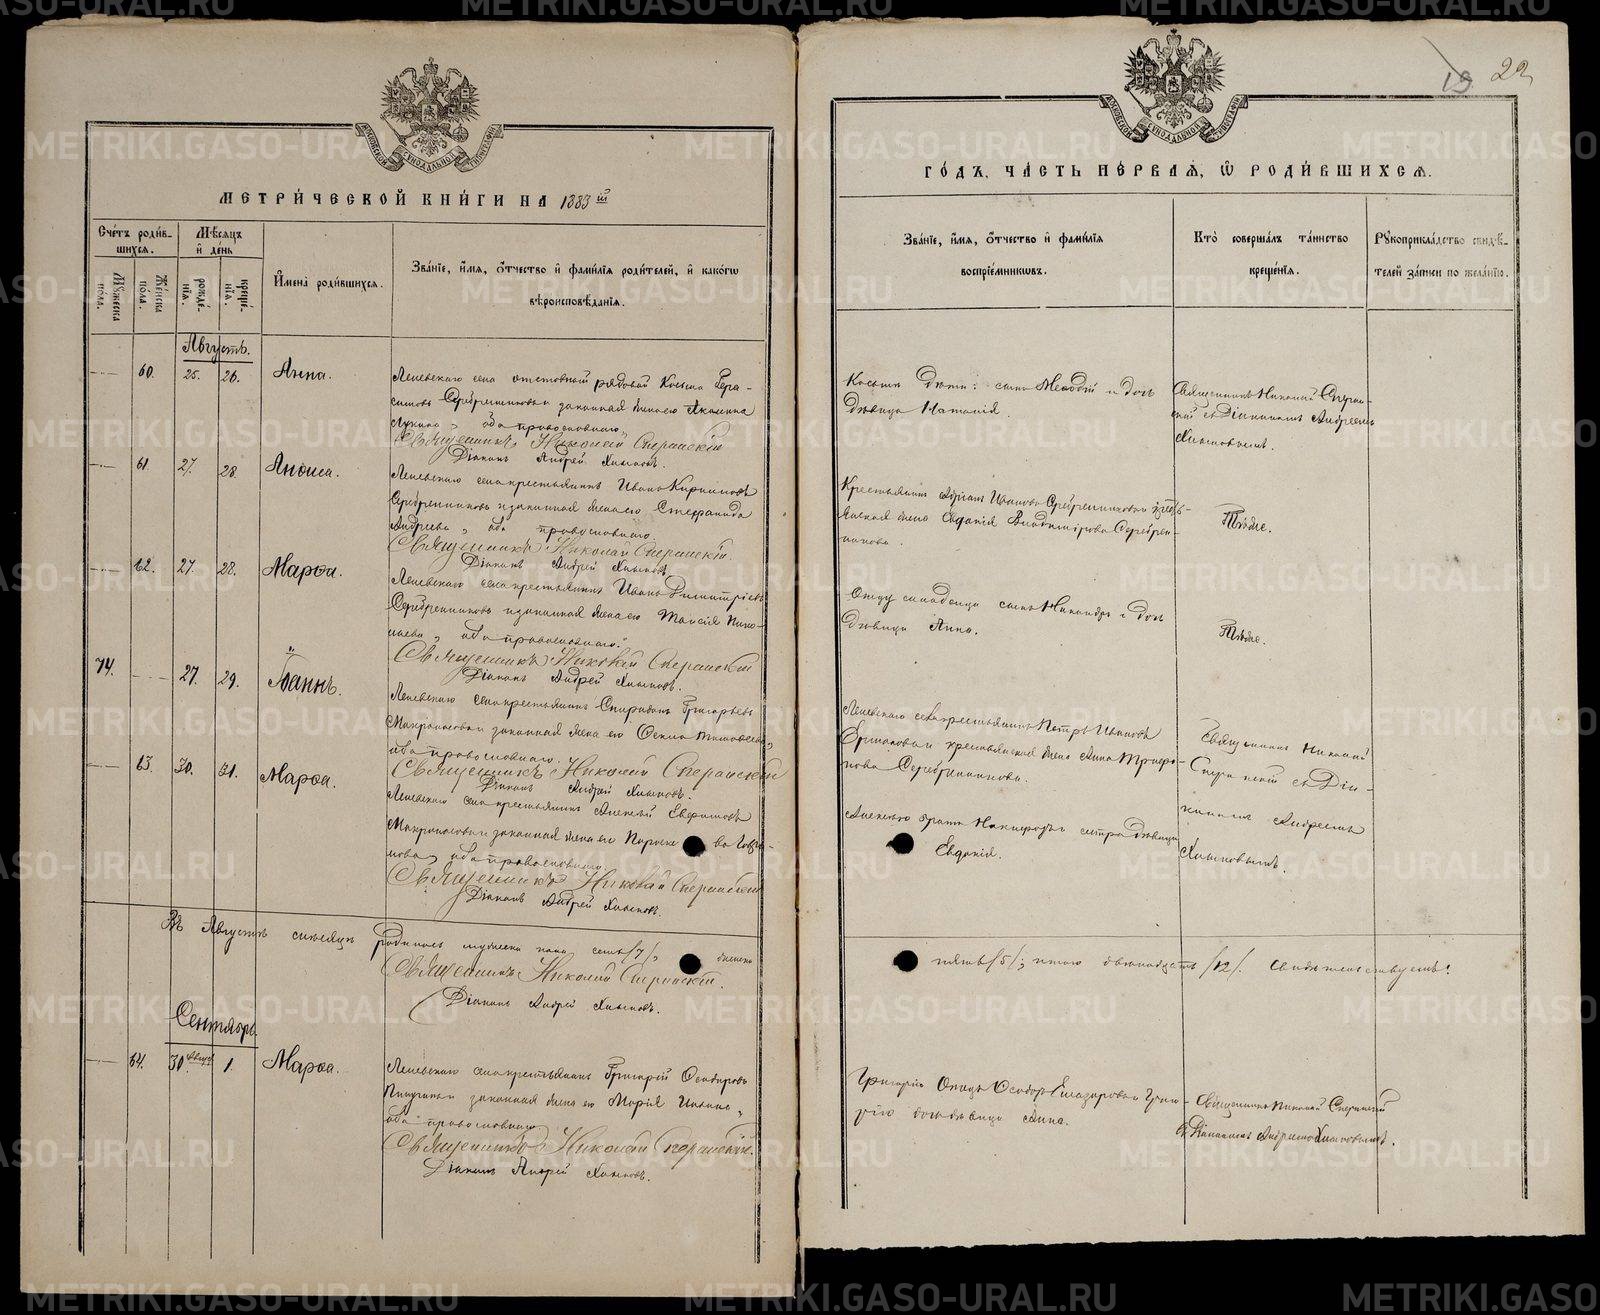 METRIKI.GASO-URAL.RU
МЕТРИ́ЧЕСКОЙ КНИ́ГИ НА 1883 й
Сче́тъ роди́в-
шихся.
Мѣ́сяцъ
и҆ де́нь
Мꙋ́жеска
по́ла.
Же́нска
по́ла.
рожде́-
нїѧ.
креще́-
нїѧ.
И҆мена̀ роди́вшихсѧ.
Зва́нїе, и҆́мѧ, ѻ҆́тчество и҆ фами́лїѧ роди́телей, и҆ како́гѡ
вѣроисповѣ́данїѧ.
Августъ.
60. 25. 26. Анна.
Леневскаго села отставный рядовой Косьма Гера-
симовъ Серебренниковъ и законная жена его Акилина
Лукина, оба православнаго.
Священникъ Николай Сперанскій
Діаконъ Андрей Хлыновъ.
61. 27. 28. Анѳиса.
Леневскаго села крестьянинъ Иванъ
Серебренниковъ и законная жена его Стефанида
Андреева, оба православнаго.
Священникъ Николай Сперанскій.
Діаконъ Андрей Хлыновъ.
62. 27. 28. Марѳа.
Леневскаго села крестьянинъ Иванъ Димитріевъ
Серебренниковъ и законная жена его Таисія Нико-
лаева, оба православнаго.
Священникъ Николай Сперанскій
Діаконъ Андрей Хлыновъ.
74. 27. 29. Іоаннъ.
Леневскаго села крестьянинъ Спиридонъ Григорьевъ
и законная жена его
оба православнаго.
Священникъ Николай Сперанскій
Діаконъ Андрей Хлыновъ.
63. 30. 31. Марѳа.
Леневскаго села крестьянинъ Алексѣй
и законная жена его
оба православнаго
Священникъ Николай Сперанскій
Діаконъ Андрей Хлыновъ.
Въ Августѣ мѣсяцѣ родилось мужеска пола семь /7/, женска
Священникъ Николай Сперанскій.
Діаконъ Андрей Хлыновъ.
Сентябрь.
64. 30 август. 1. Марѳа.
Леневскаго села крестьянинъ Григорій Ѳеодоровъ
и законная жена его Марія
оба православнаго
Священникъ Николай Сперанскій.
Діаконъ Андрей Хлыновъ.
19 22
ГО́ДЪ, ЧА́СТЬ ПЕ́РВАѦ, Ѡ҆ РОДИ́ВШИХСѦ.
Зва́нїе, и҆́мѧ, ѻ҆́тчество и҆ фами́лїѧ
воспрїе́мникѡвъ.
Кто̀ соверша́лъ та́инство
креще́нїѧ.
Рꙋкоприкла́дство свидѣ́-
телей за́писи по жела́нїю.
Косьмы дѣти: сынъ Меѳодій и дочь
дѣвица Наталія.
Священникъ Николай Сперан-
скій съ Діакономъ Андреемъ
Хлыновымъ.
Крестьянинъ Адріанъ Ивановъ Серебренниковъ и кресть-
янская жена Евдокія Владимірова Серебрен-
никова.
Тѣ же.
Отцу младенца сынъ Никандръ и дочь
дѣвица Анна.
Тѣ же.
Леневскаго села крестьянинъ Петръ Ивановъ
и крестьянская жена Анна
Серебренникова.
Священникъ Николай
Сперанскій съ Діа-
кономъ Андреемъ
Хлыновымъ.
Алексѣю братъ сестра дѣвица
Евдокія.
пять /5/, итого двѣнадцать /12/. Свидѣтельствуемъ:
Григорію Отецъ Ѳеодоръ и
дѣвица Анна.
Священникъ Николай Сперанскій
съ Діакономъ Андреемъ Хлыновымъ.